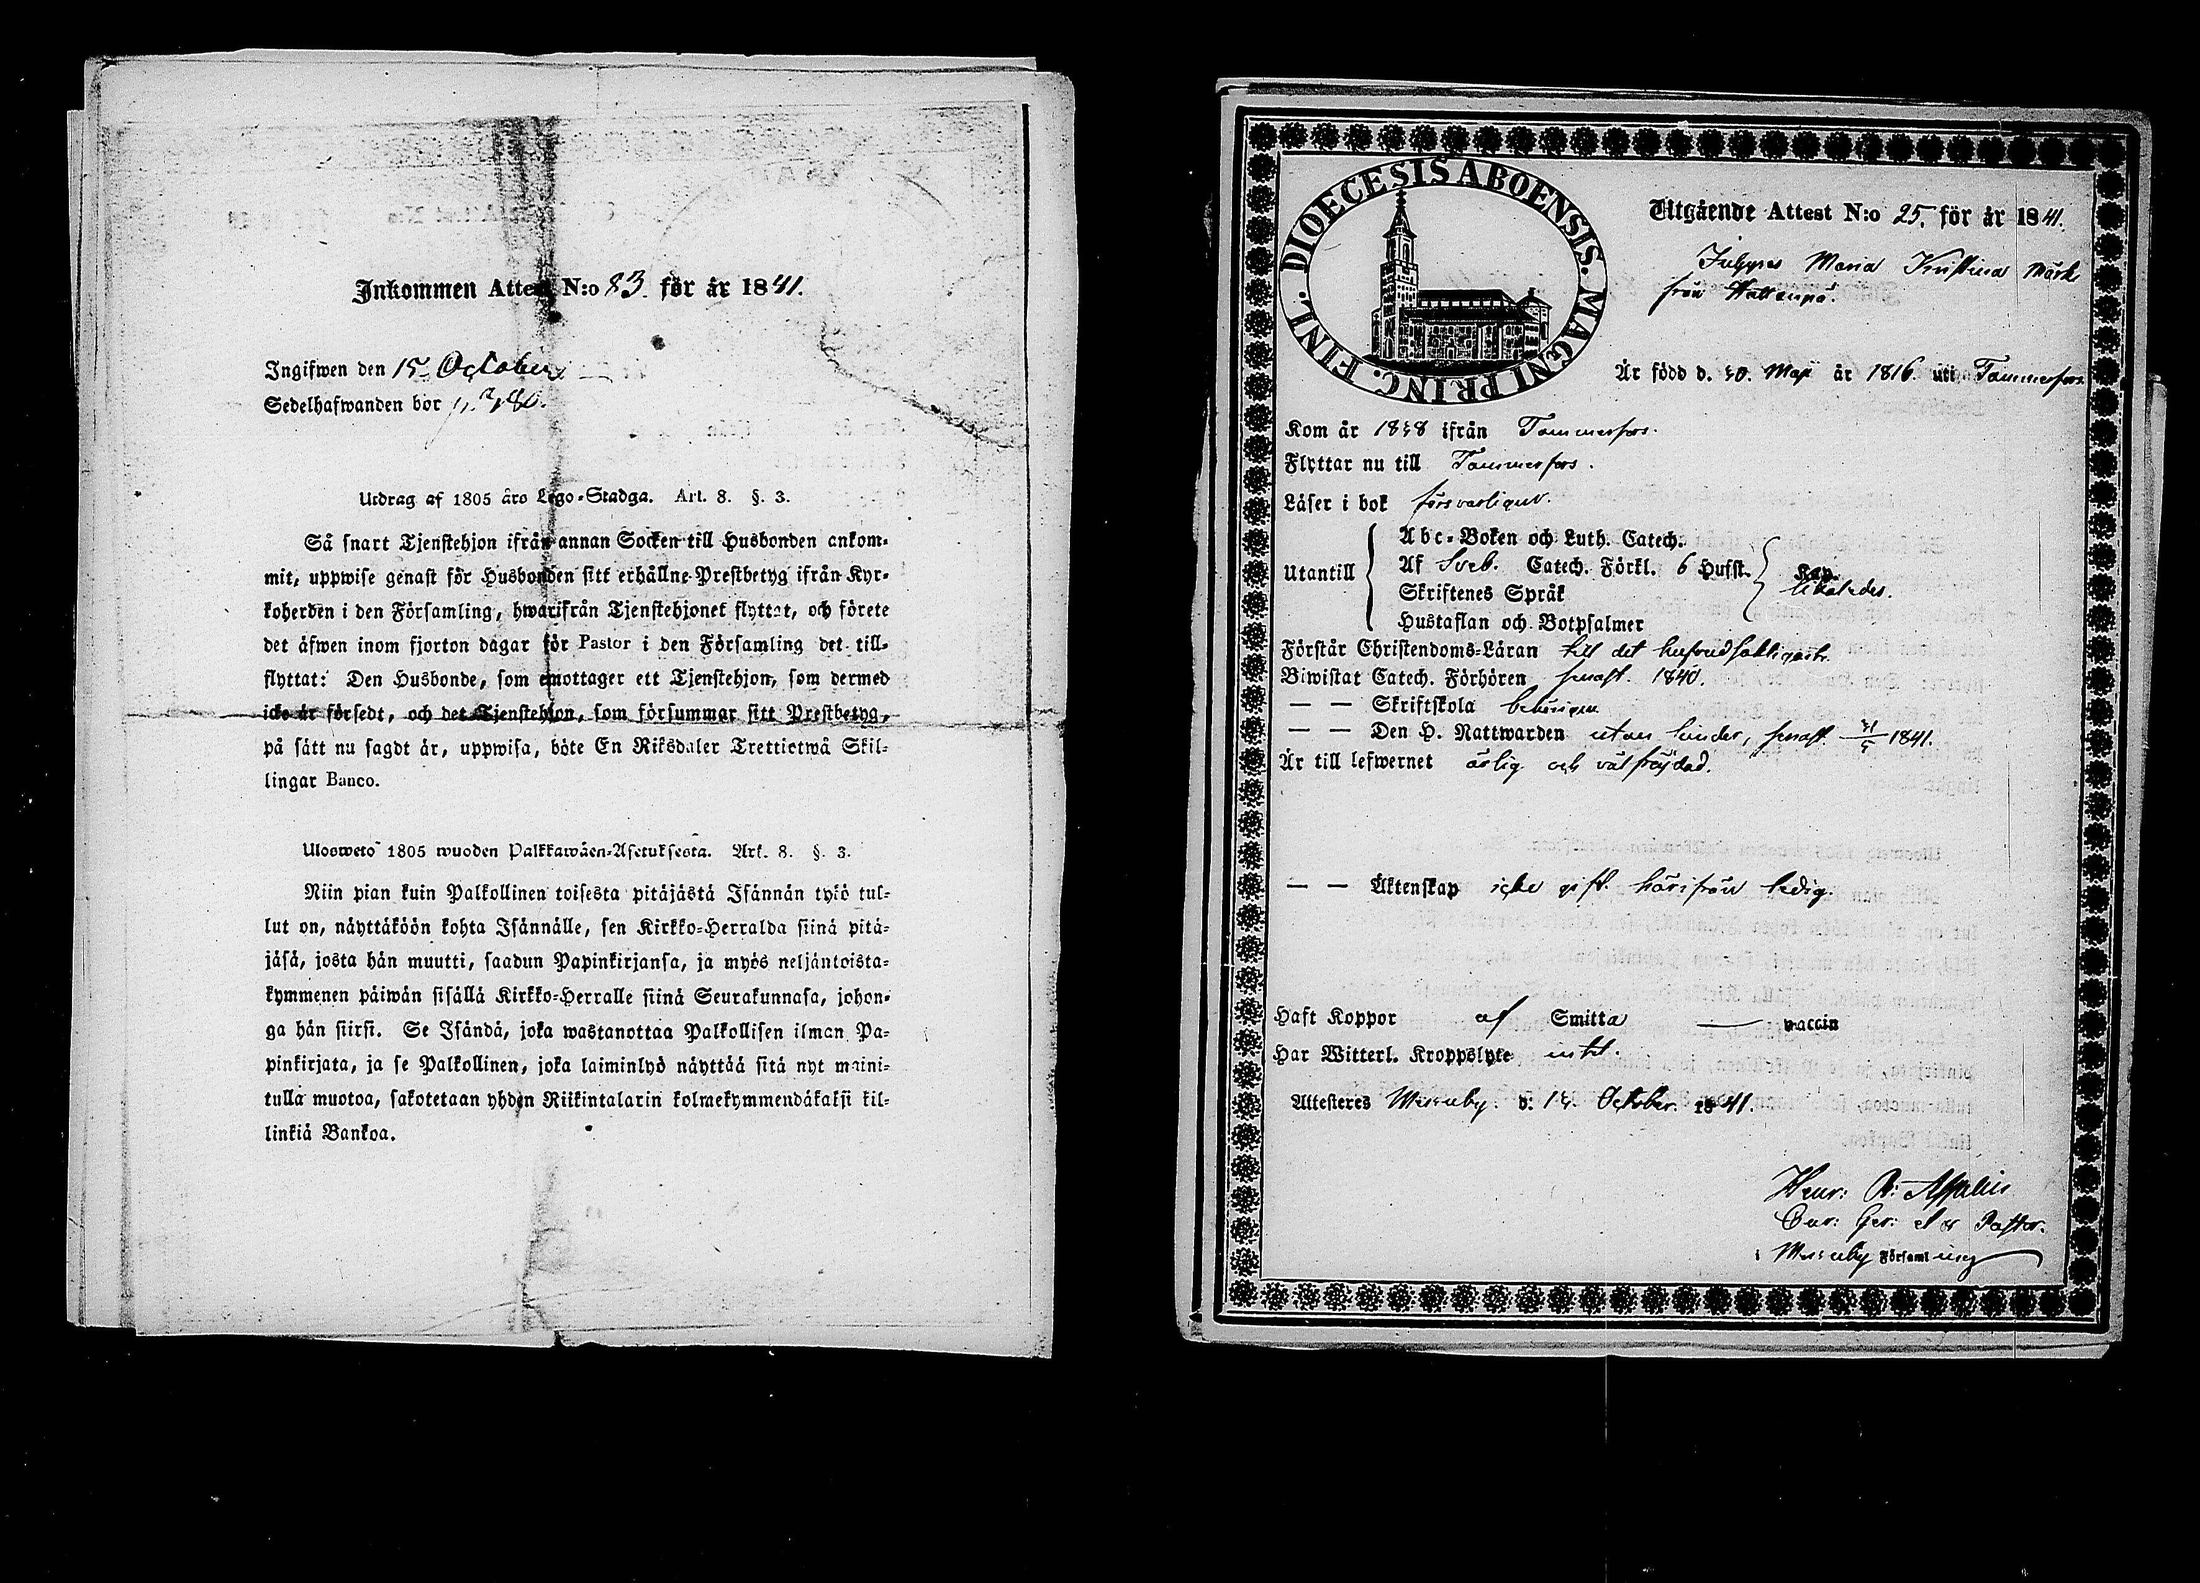 Inkommen Attest N:o 83. för år 1841.
Ingifwen den 15 October
Sedelhafwanden bor
Utdrag af 1805 års Lego-Stadga. Art. 8. §. 3.
Så snart Tjenstehjon ifrån annan Socken till Husbonden ankom-
mit, uppwise genast för Husbonden sitt erhållne Prestbetyg ifrån Kyr-
koherden i den Församling, hwarifrån Tjenstehjonet flyttat, och förete
det äfwen inom fjorton dagar för Pastor i den Församling det till-
flyttat: Den Husbonde, som emottager ett Tjenstehjon, som dermed
icke är försedt, och det Tjenstehjon, som försummar sitt Prestbetyg,
på sätt nu sagdt är, uppwisa, böte En Riksdaler Trettiotwå Skil-
lingar Banco.
Ulosweto 1805 wuoden Palkkawäen-Asetuksesta. Art. 8. §. 3.
Niin pian kuin Palkollinen toisesta pitäjästä Isännän työ tul-
lut on, näyttäköön kohta Isännälle, sen Kirkko-Herralda siinä pitä-
jäsä, josta hän muutti, saadun Papinkirjansa, ja myös neljäntoista-
kymmenen päiwän sisällä Kirkko-Herralle siinä Seurakunnasa, johon-
ga hän siirsi. Se Isändä, joka wastanottaa Palkollisen ilman Pa-
pinkirjata, ja se Palkollinen, joka laiminlyö näyttää sitä nyt maini-
tulla muotoa, sakotetaan yhden Riikintalarin kolmekymmendäkaksi kil-
linkiä Bankoa.
DIOECESIS ABOENSIS. MAGNI PRINC. FINL.
Utgående Attest N:o 25. för år 1841.
Maria Kristina
från
Är född d. 30. Maji år 1816. uti Tammerfors
Kom år 1838 ifrån Tammerfors.
Flyttar nu till Tammerfors.
Läser i bok försvarligen.
Utantill
Abc-Boken och Luth. Catech.
Af Sveb. Catech. Förkl. 6 Hufst.
Skriftenes Språk
Hustaflan och Botpsalmer
Kap.
Förstår Christendoms-Läran till det hufvudsakligaste
Biwistat Catech. Förhören senast. 1840.
— — Skriftskola behörigen
— — Den H. Nattwarden utan hinder, senast 31/5 1841.
Är till lefwernet ärlig och välfräjdad.
— — Äktenskap icke gift. härifrån ledig.
Haft Koppor af Smitta — vaccin
Har Witterl. Kroppslyte intet.
Attesteres Messuby. d. 13. October. 1841.
Henr:
Cur: Ger: et Pastor.
i Messuby Församling